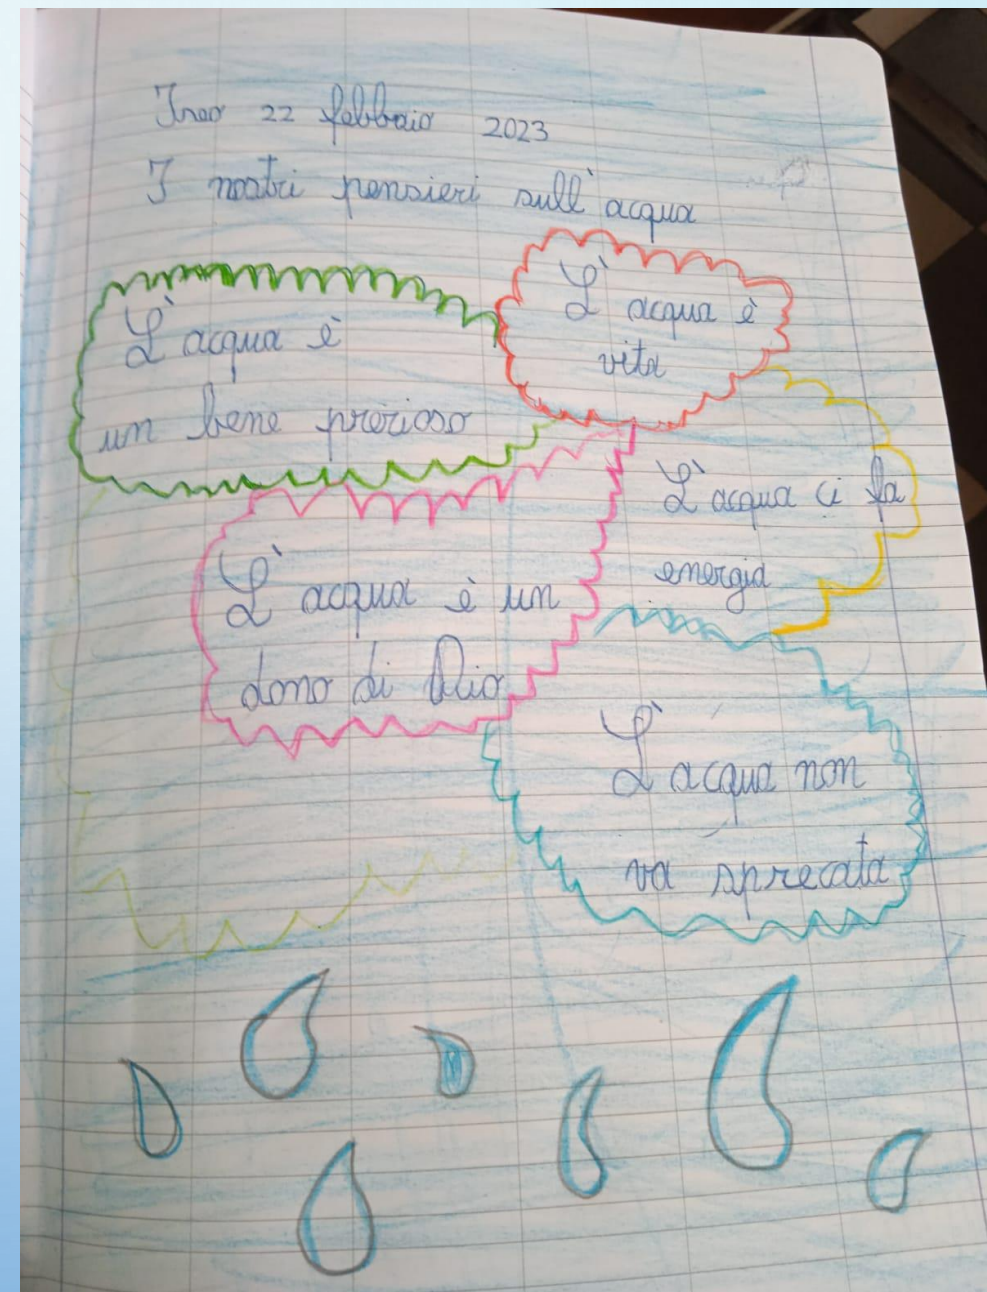 Iseo 22 febbraio 2023
I nostri pensieri sull'acqua
L'acqua è
un bene prezioso
L'acqua è
vita
L'acqua è un
dono di Dio
L'acqua ci fa
energia
L'acqua non
va sprecata